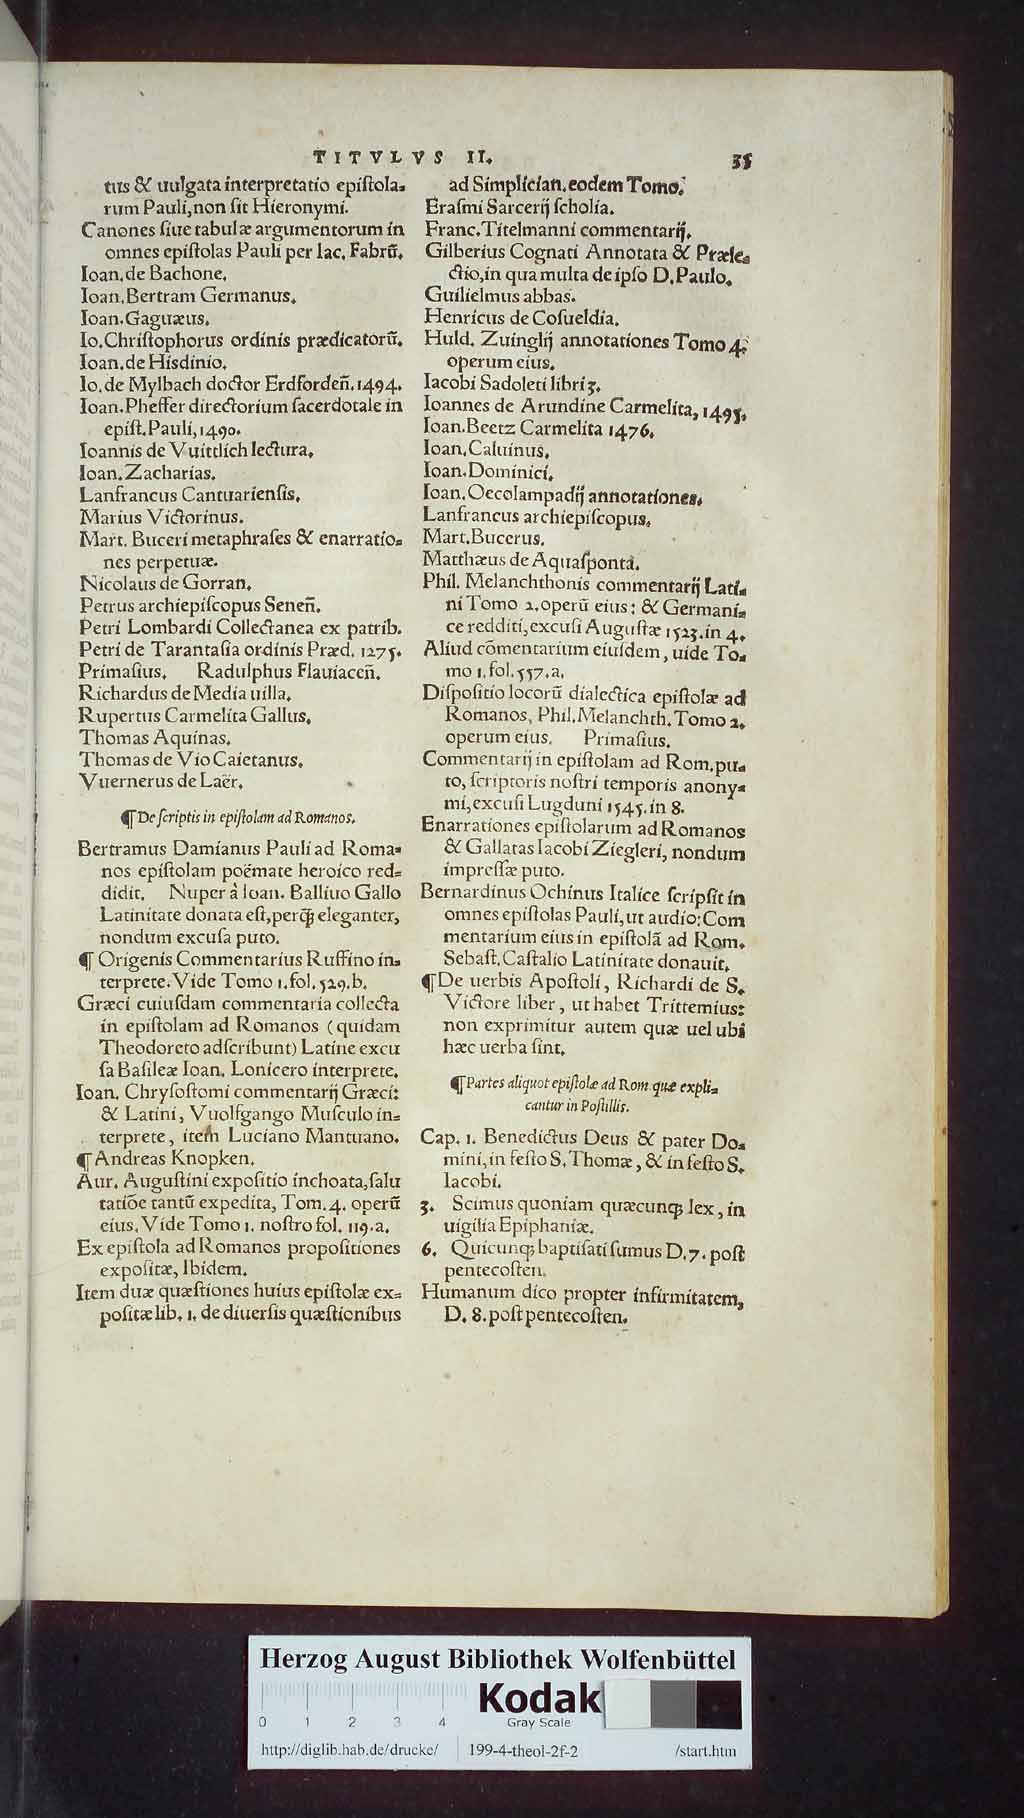 TITVLVS II. 35
tus & uulgata interpretatio epiſtola-
rum Pauli, non ſit Hieronymi.
Canones ſiue tabulæ argumentorum in
omnes epiſtolas Pauli per Iac. Fabrū.
Ioan. de Bachone.
Ioan. Bertram Germanus.
Ioan. Gaguæus.
Io. Chriſtophorus ordinis prædicatorū.
Ioan. de Hisdinio.
Io. de Mylbach doctor Erdforden̄. 1494.
Ioan. Pheffer directorium ſacerdotale in
epiſt. Pauli, 1490.
Ioannis de Vuittlich lectura.
Ioan. Zacharias.
Lanfrancus Cantuarienſis.
Marius Victorinus.
Mart. Buceri metaphraſes & enarratio-
nes perpetuæ.
Nicolaus de Gorran.
Petrus archiepiſcopus Senen̄.
Petri Lombardi Collectanea ex patrib.
Petri de Tarantaſia ordinis Præd. 1275.
Primaſius. Radulphus Flauiacen̄.
Richardus de Media uilla.
Rupertus Carmelita Gallus.
Thomas Aquinas.
Thomas de Vio Caietanus.
Vuernerus de Laër.
¶ De ſcriptis in epiſtolam ad Romanos.
Bertramus Damianus Pauli ad Roma-
nos epiſtolam poëmate heroico red-
didit. Nuper à Ioan. Balliuo Gallo
Latinitate donata eſt, perq́; eleganter,
nondum excuſa puto.
¶ Origenis Commentarius Ruffino in-
terprete. Vide Tomo 1. fol. 529. b.
Græci cuiuſdam commentaria collecta
in epiſtolam ad Romanos (quidam
Theodoreto adſcribunt) Latine excu
ſa Baſileæ Ioan. Lonicero interprete.
Ioan. Chryſoſtomi commentarij Græci:
& Latini, Vuolfgango Muſculo in-
terprete, item Luciano Mantuano.
¶ Andreas Knopken.
Aur. Auguſtini expoſitio inchoata, ſalu
tatiōe tantū expedita, Tom. 4. operū
eius. Vide Tomo 1. noſtro fol. 119. a.
Ex epiſtola ad Romanos propoſitiones
expoſitæ, Ibidem.
Item duæ quæſtiones huius epiſtolæ ex-
poſitæ lib. 1. de diuerſis quæſtionibus
ad Simplician. eodem Tomo.
Eraſmi Sarcerij ſcholia.
Franc. Titelmanni commentarij.
Gilberius Cognati Annotata & Præle-
ctio, in qua multa de ipſo D. Paulo.
Guilielmus abbas.
Henricus de Coſueldia.
Huld. Zuinglij annotationes Tomo 4.
operum eius.
Iacobi Sadoleti libri 3.
Ioannes de Arundine Carmelita, 1495.
Ioan. Beetz Carmelita 1476.
Ioan. Caluinus.
Ioan. Dominici.
Ioan. Oecolampadij annotationes.
Lanfrancus archiepiſcopus.
Mart. Bucerus.
Matthæus de Aquaſponta.
Phil. Melanchthonis commentarij Lati-
ni Tomo 2. operū eius: & Germani-
ce redditi, excuſi Auguſtæ 1523. in 4.
Aliud cōmentarium eiuſdem, uide To-
mo 1. fol. 557. a.
Diſpoſitio locorū dialectica epiſtolæ ad
Romanos, Phil. Melanchth. Tomo 2.
operum eius. Primaſius.
Commentarij in epiſtolam ad Rom. pu-
to, ſcriptoris noſtri temporis anony-
mi, excuſi Lugduni 1545. in 8.
Enarrationes epiſtolarum ad Romanos
& Gallatas Iacobi Ziegleri, nondum
impreſſæ puto.
Bernardinus Ochinus Italice ſcripſit in
omnes epiſtolas Pauli, ut audio: Com
mentarium eius in epiſtolā ad Rom.
Sebaſt. Caſtalio Latinitate donauit.
¶ De uerbis Apoſtoli, Richardi de S.
Victore liber, ut habet Trittemius:
non exprimitur autem quæ uel ubi
hæc uerba ſint.
¶ Partes aliquot epiſtolæ ad Rom. quæ expli-
cantur in Poſtillis.
Cap. 1. Benedictus Deus & pater Do-
mini, in feſto S. Thomæ, & in feſto S.
Iacobi.
3. Scimus quoniam quæcunq; lex, in
uigilia Epiphaniæ.
6. Quicunq; baptiſati ſumus D. 7. poſt
pentecoſten.
Humanum dico propter infirmitatem,
D. 8. poſt pentecoſten.
Herzog August Bibliothek Wolfenbüttel
Kodak
0 1 2 3 4 Gray Scale
http://diglib.hab.de/drucke/ 199-4-theol-2f-2 /start.htm